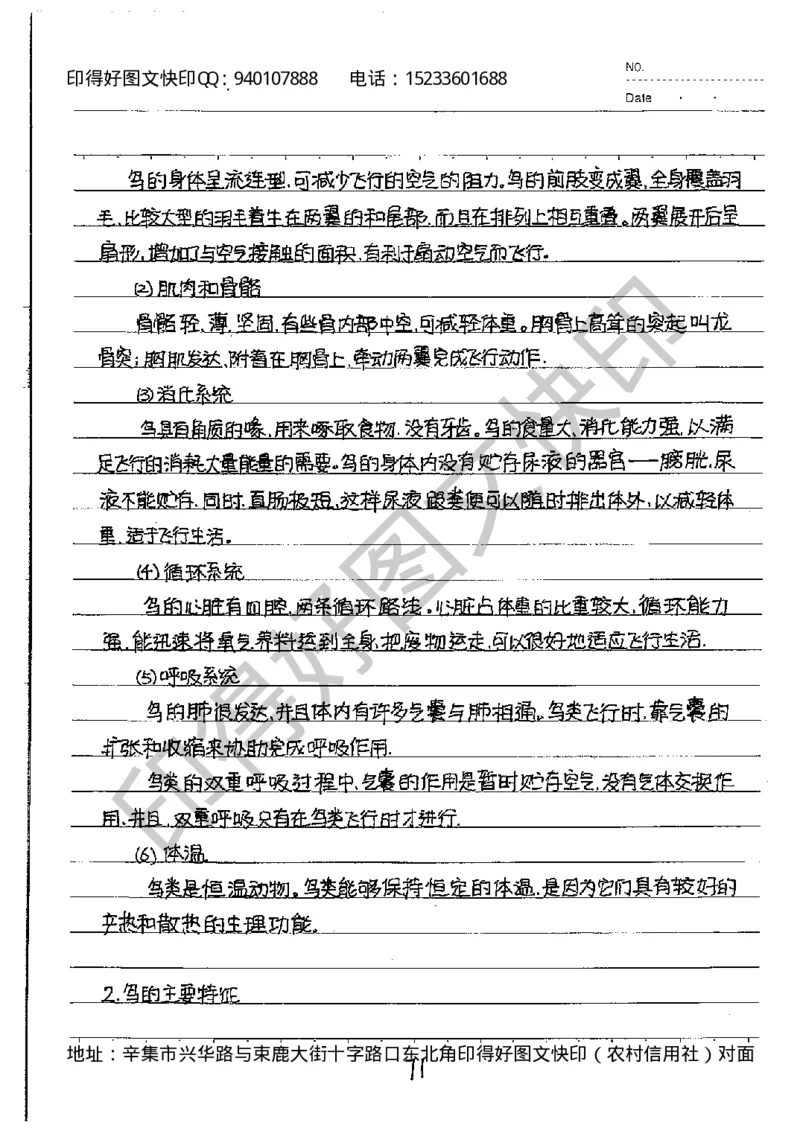 印得好图文快印QQ：940107888 电话：15233601688
NO.
Date
鸟的身体呈流连型,可减少飞行的空气的阻力。鸟的前肢变成翼,全身覆盖羽
毛,比较大型的羽毛着生在两翼的和尾部,而且在排列上相互重叠。两翼展开后呈
扇形,增加了与空气接触的面积,有利于扇动空气而飞行。
(2)肌肉和骨骼
骨骼轻、薄、坚固,有些骨内部中空,可减轻体重。胸骨上高耸的突起叫龙
骨突;胸肌发达,附着在胸骨上,牵动两翼完成飞行动作.
(3)消化系统
鸟具有角质的喙,用来啄取食物,没有牙齿。鸟的食量大,消化能力强,以满
足飞行的消耗大量能量的需要。鸟的身体内没有贮存尿液的器官——膀胱,尿
液不能贮存,同时,直肠极短,这样尿液跟粪便可以随时排出体外,以减轻体
重,适于飞行生活。
(4)循环系统
鸟的心脏有四腔,两条循环路线。心脏占体重的比重较大,循环能力
强,能迅速将氧气养料运到全身,把废物运走,可以很好地适应飞行生活.
(5)呼吸系统
鸟的肺很发达,并且体内有许多气囊与肺相通。鸟类飞行时,靠气囊的
扩张和收缩来协助完成呼吸作用.
鸟类的双重呼吸过程中,气囊的作用是暂时贮存空气,没有气体交换作
用,并且,双重呼吸只有在鸟类飞行时才进行.
(6)体温
鸟类是恒温动物。鸟类能够保持恒定的体温,是因为它们具有较好的
产热和散热的生理功能.
2.鸟的主要特征
地址：辛集市兴华路与束鹿大街十字路口东北角印得好图文快印（农村信用社）对面
71
印得好图文快印